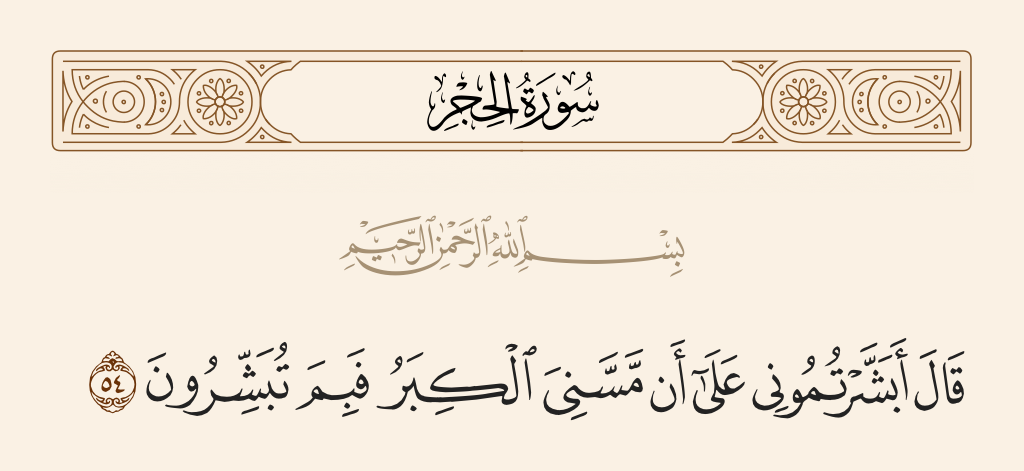 سُورَةُ الحِجْرِ
بِسْمِ ٱللَّهِ ٱلرَّحْمَٰنِ ٱلرَّحِيمِ
قَالَ أَبَشَّرْتُمُونِى عَلَىٰٓ أَن مَّسَّنِىَ ٱلْكِبَرُ فَبِمَ تُبَشِّرُونَ ٥٤